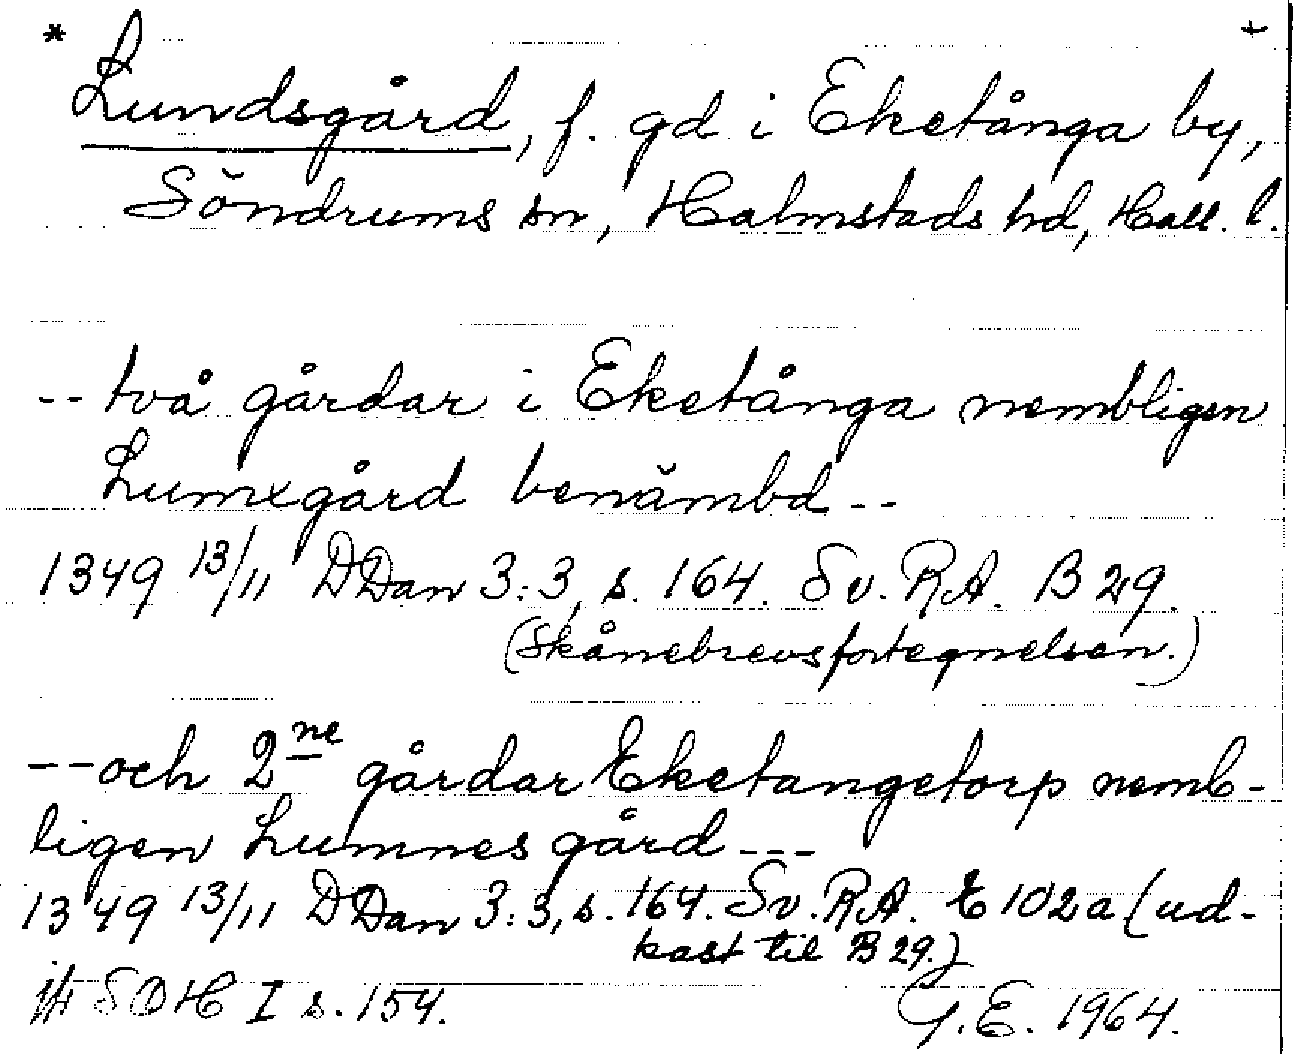 * +
Lundsgård, f. gd i Eketånga by,
Söndrums sn, Halmstads hd, Hall. l.
-- två gårdar i Eketånga nembligen
Lumxgård benämbd --
1349 13/11 DDan 3:3, s. 164. Sv. RA. B 29.
(Skånebrevsfortegnelsen.)
-- och 2ne gårdar Eketangetorp nemb-
ligen Lumnesgård ---
1349 13/11 DDan 3:3, s. 164. Sv. RA. E 102a (ud-
kast til B 29.)
jfr SOH I s. 154. G.E. 1964.